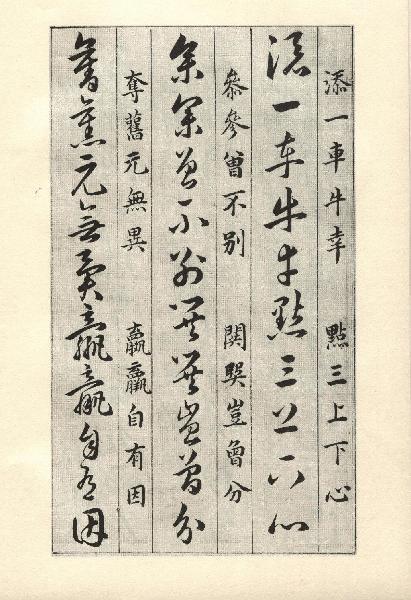 添一車牛幸 點三上下心
添一車牛幸點三上下心
叅參曾不別 豈曾分
叅參曾不別豈曾分
奪舊元無異 自有因
奪舊元無異自有因